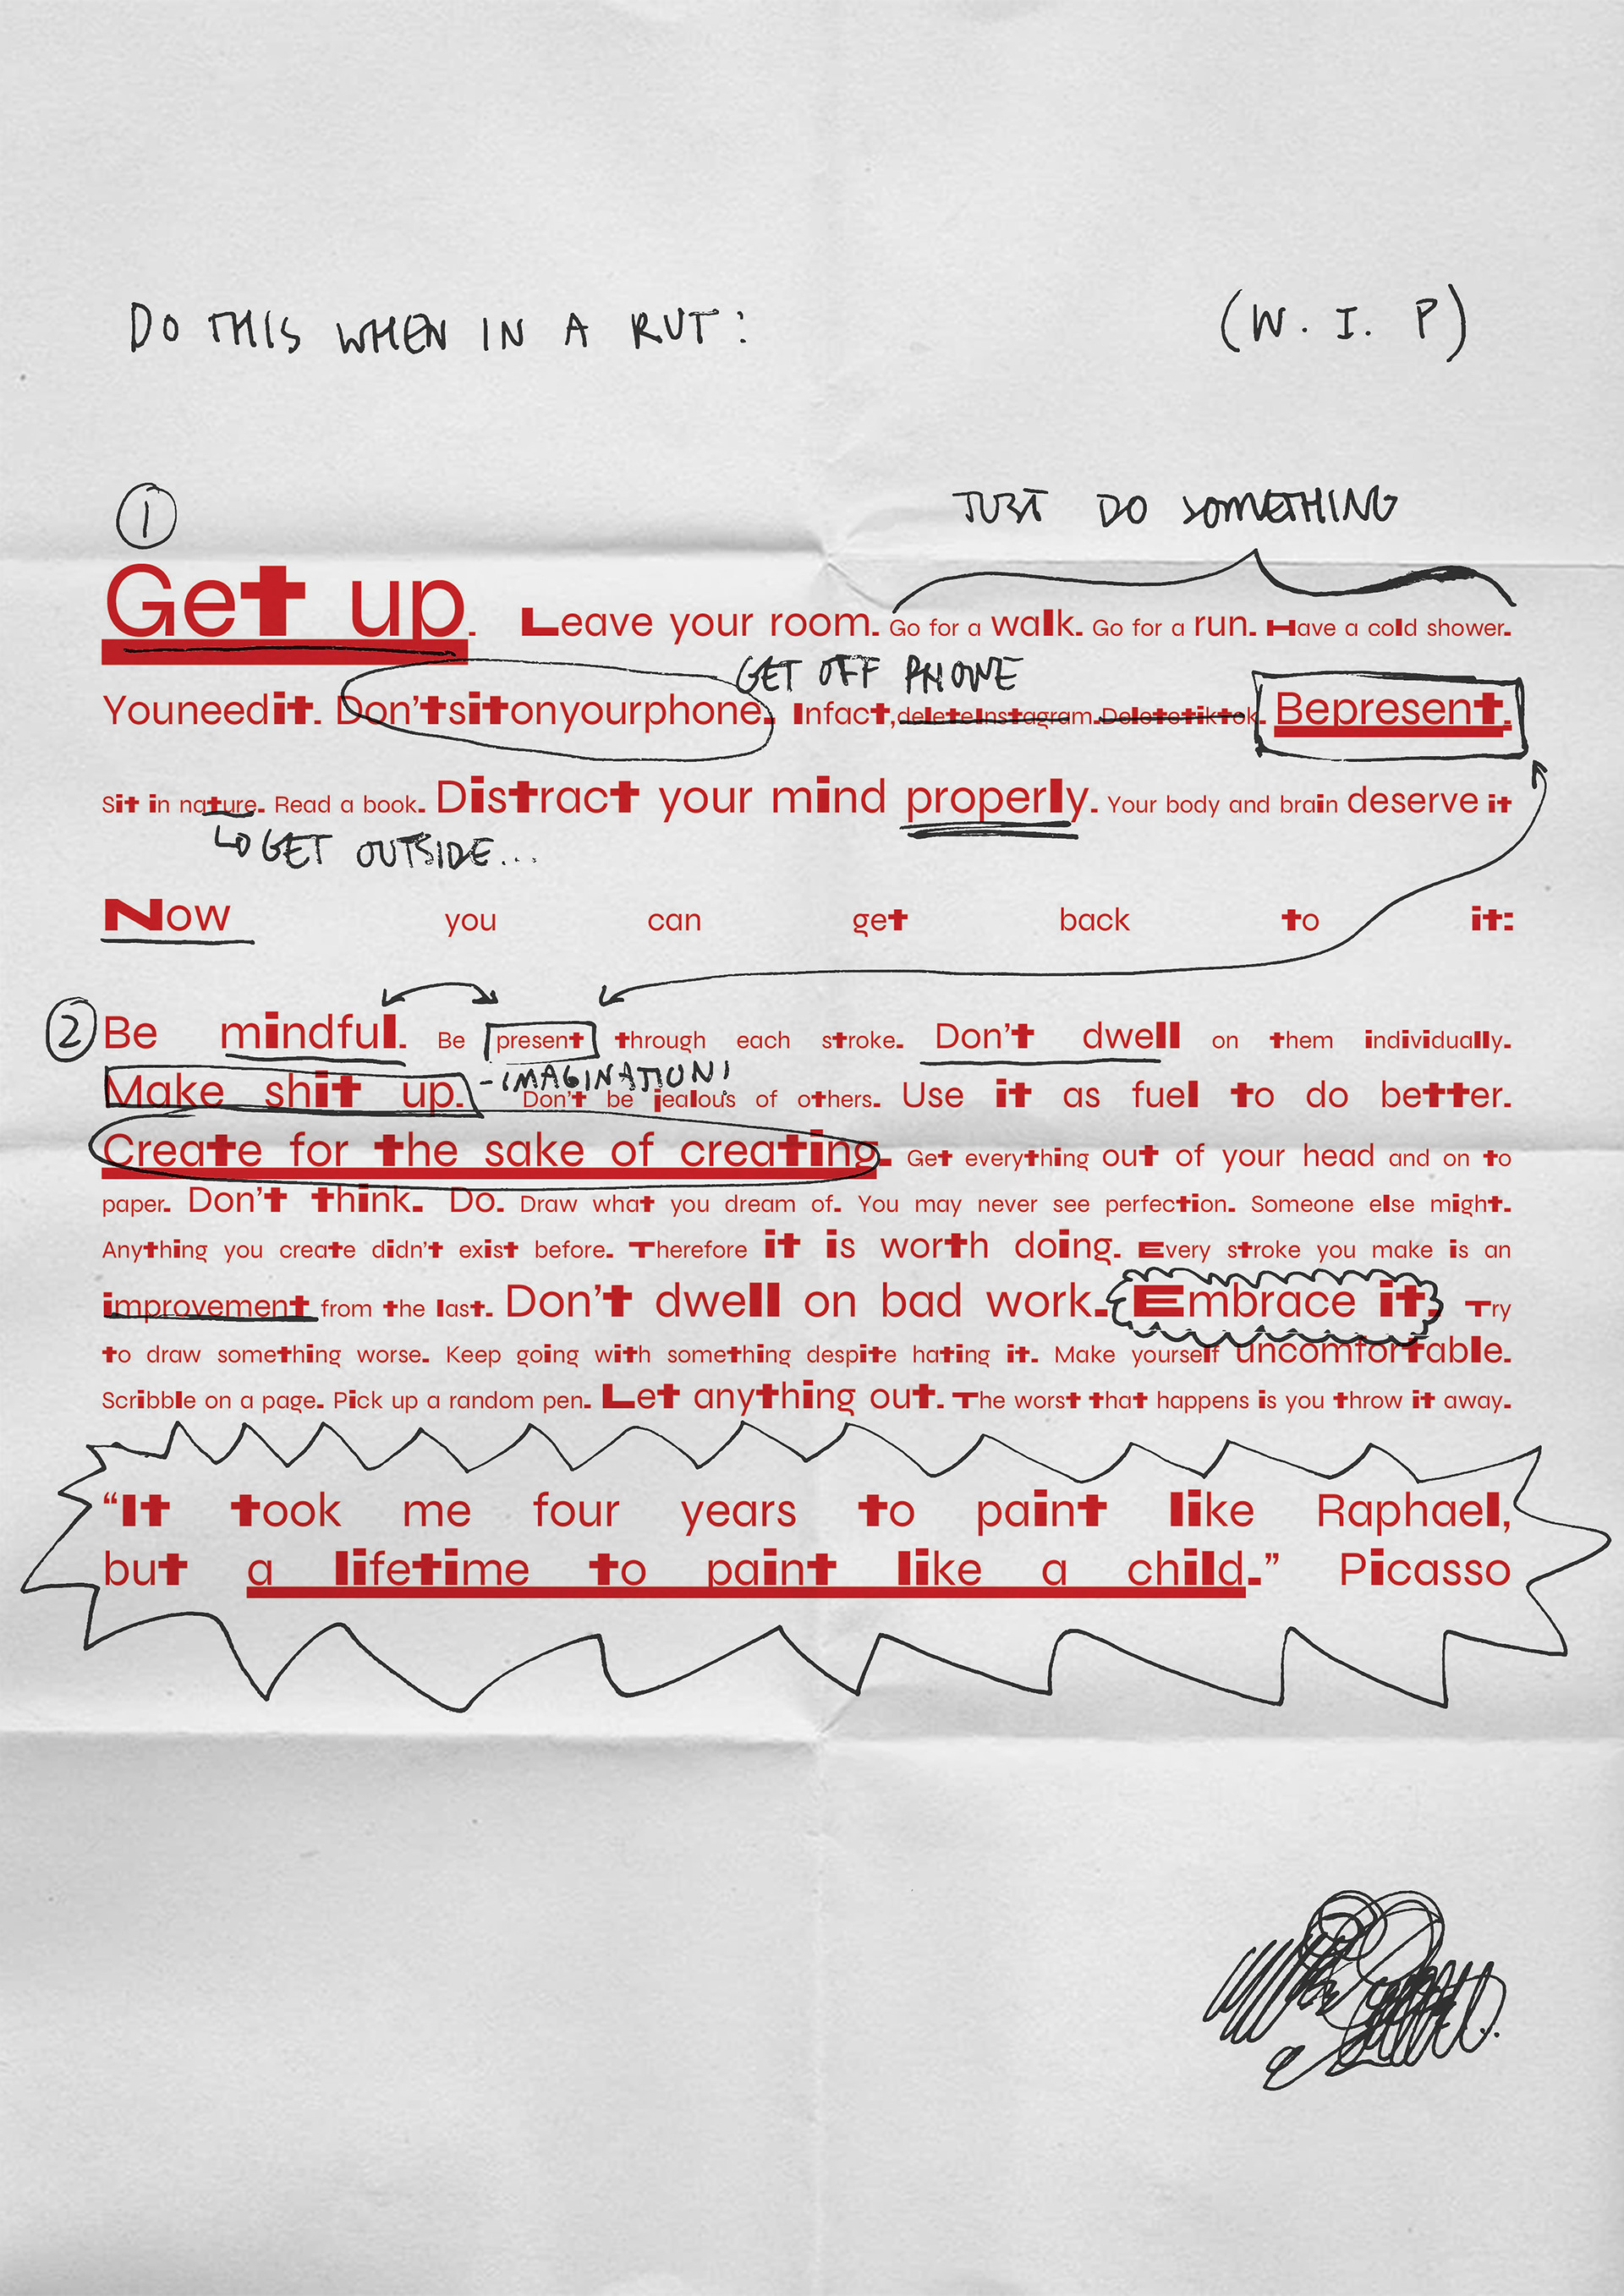 DO THIS WHEN IN A RUT: (W. I. P)
1
JUST DO SOMETHING
Get up. Leave your room. Go for a walk. Go for a run. Have a cold shower.
GET OFF PHONE
Youneedit. Don'tsitonyourphone. Infact,deleteInstagram.Deletetiktok. Bepresent.
Sit in nature. Read a book. Distract your mind properly. Your body and brain deserve it
GET OUTSIDE...
Now you can get back to it:
2 Be mindful. Be present through each stroke. Don't dwell on them individually.
-IMAGINATION!
Make shit up. Don't be jealous of others. Use it as fuel to do better.
Create for the sake of creating. Get everything out of your head and on to
paper. Don't think. Do. Draw what you dream of. You may never see perfection. Someone else might.
Anything you create didn't exist before. Therefore it is worth doing. Every stroke you make is an
improvement from the last. Don't dwell on bad work. Embrace it. Try
to draw something worse. Keep going with something despite hating it. Make yourself uncomfortable.
Scribble on a page. Pick up a random pen. Let anything out. The worst that happens is you throw it away.
“It took me four years to paint like Raphael,
but a lifetime to paint like a child.” Picasso